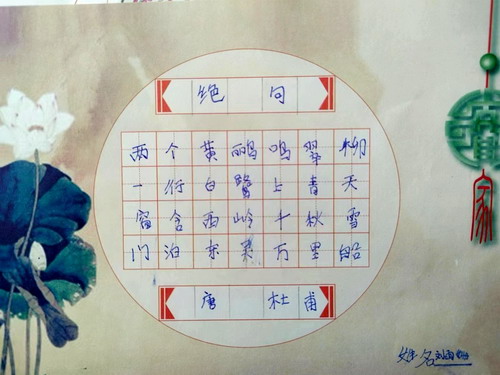 绝句
两个黄鹂鸣翠柳
一行白鹭上青天
窗含西岭千秋雪
门泊东吴万里船
唐 杜甫
姓名